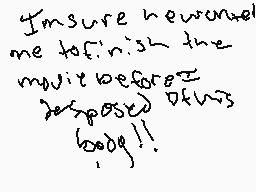 I'm sure he wanted
me to finish the
movie before I
desposed of his
body!!